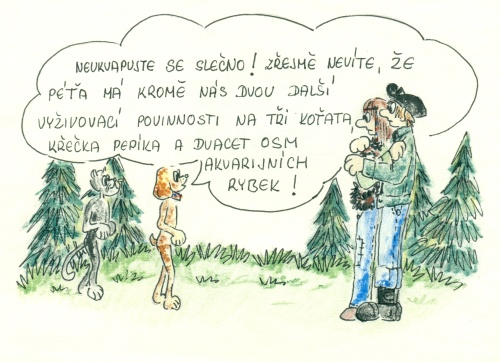 NEUKVAPUJTE SE SLEČNO! ZŘEJMĚ NEVÍTE, ŽE
PÉŤA MÁ KROMĚ NÁS DVOU DALŠÍ
VYŽIVOVACÍ POVINNOSTI NA TŘI KOŤATA
KŘEČKA PEPÍKA A DVACET OSM
AKVARIJNÍCH
RYBEK!